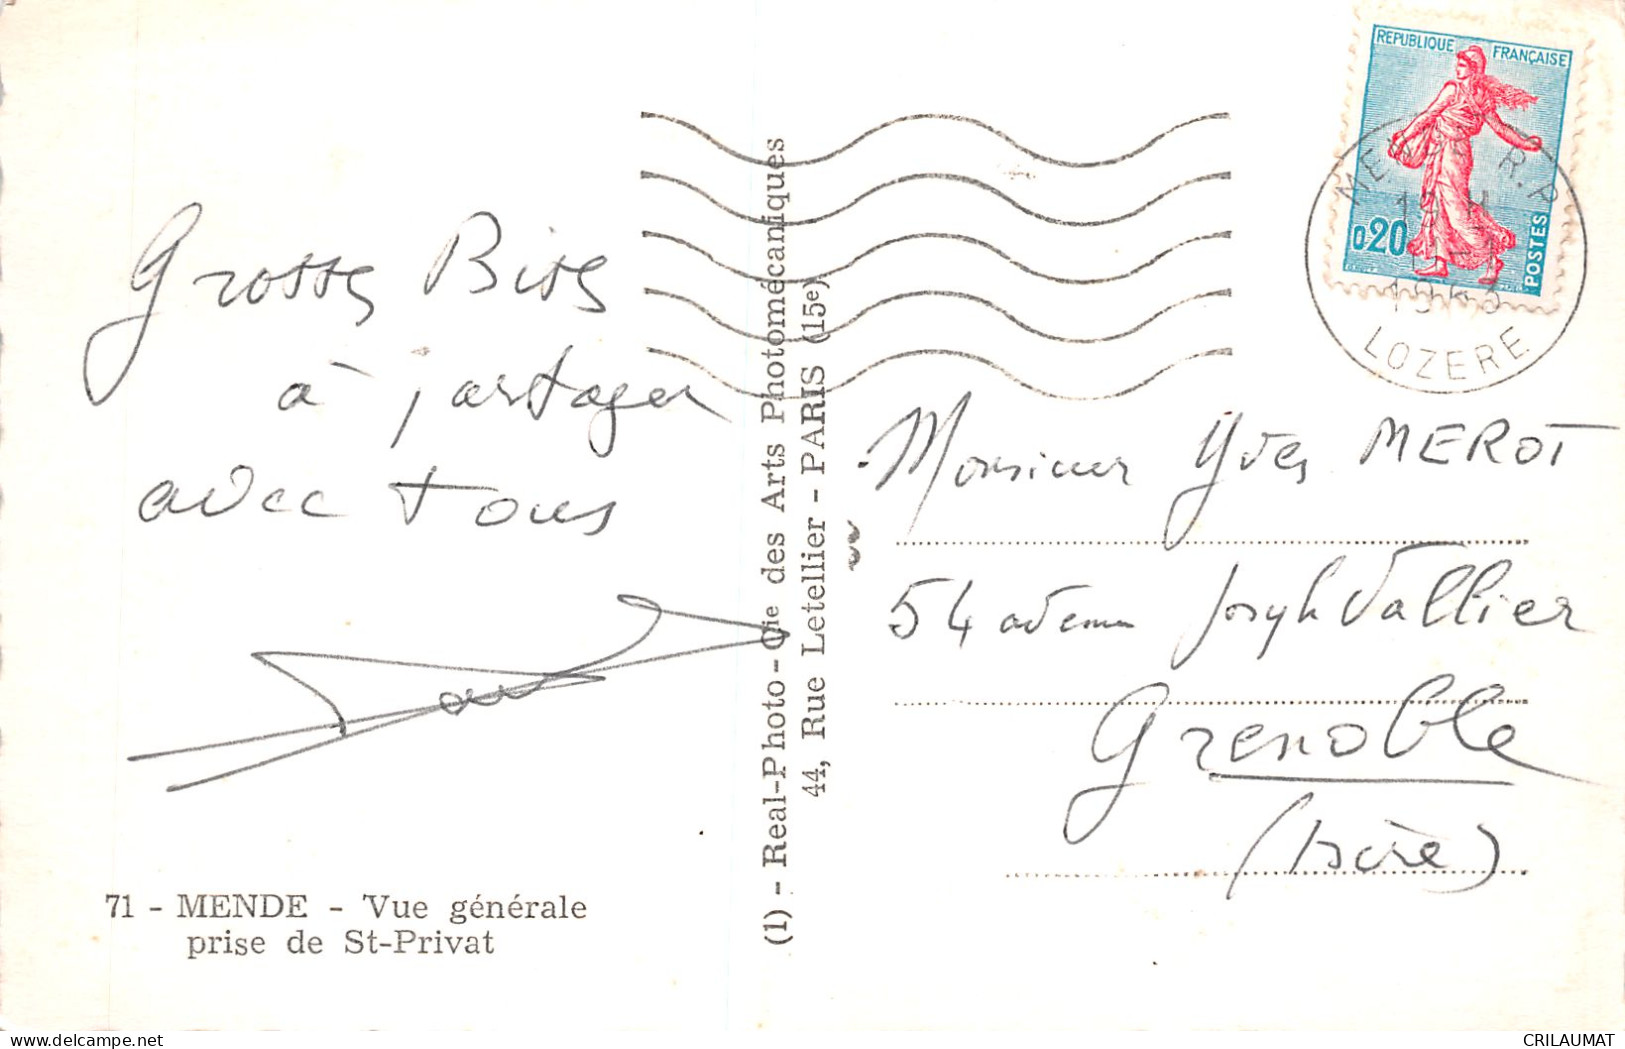 Grosses Bises
à partager
avec tous
71 - MENDE - Vue générale
prise de St-Privat
(1) - Real-Photo - Cie des Arts Photomécaniques
44, Rue Letellier - PARIS (15e)
REPUBLIQUE FRANÇAISE
0,20
POSTES
R.P.
LOZERE
Monsieur Yves MEROT
54 avenue Joseph Vallier
Grenoble
(Isère)
delcampe.net
CRILAUMAT